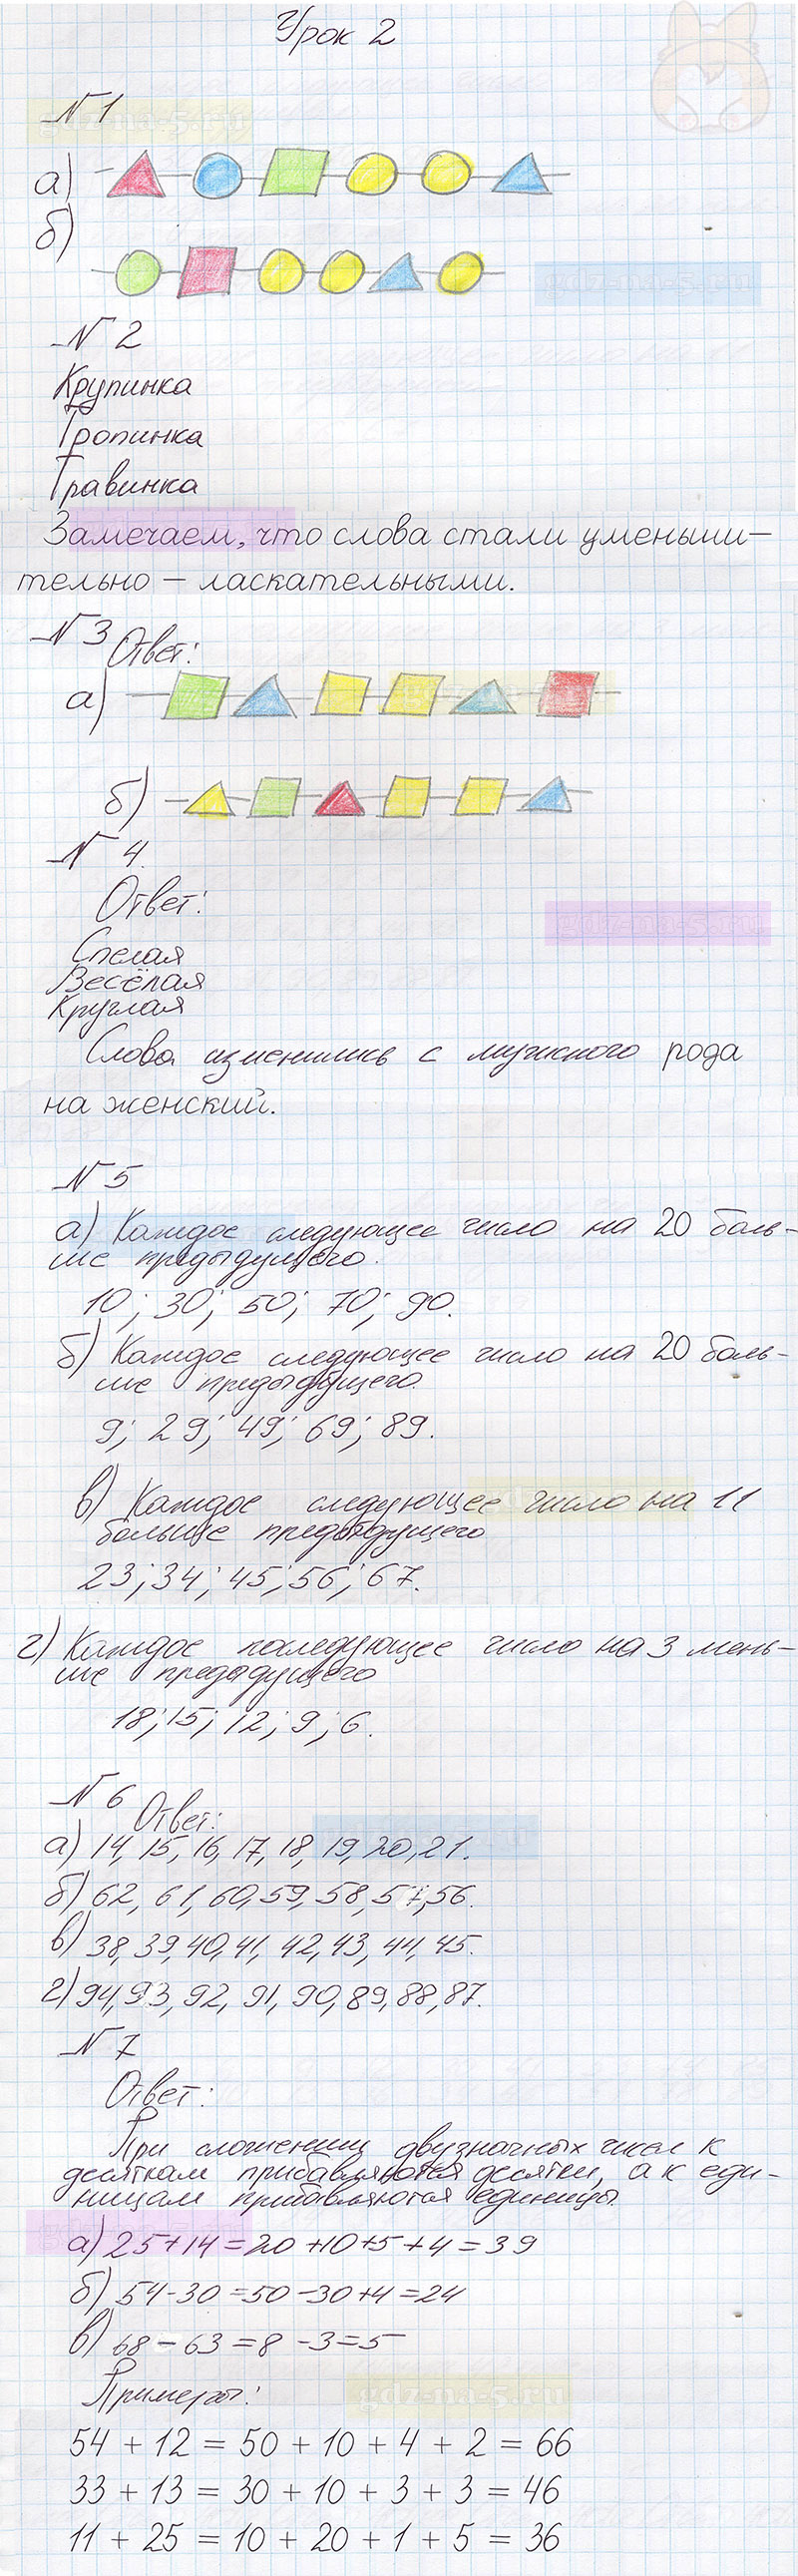 Урок 2
№ 1
gdz-na-5.ru
а)
б)
gdz-na-5.ru
№ 2
Крупинка
Тропинка
Травинка
Замечаем, что слова стали уменьши-
тельно – ласкательными.
№ 3 Ответ:
а)
б)
№ 4.
Ответ:
gdz-na-5.ru
Спелая
Весёлая
Круглая
Слова изменились с мужского рода
на женский.
№ 5
а) Каждое следующее число на 20 боль-
ше предыдущего.
10; 30; 50; 70; 90.
б) Каждое следующее число на 20 боль-
ше предыдущего.
9; 29; 49; 69; 89.
в) Каждое следующее число на 11
больше предыдущего
23; 34; 45; 56; 67.
г) Каждое последующее число на 3 мень-
ше предыдущего
18; 15; 12; 9; 6.
№ 6 Ответ:
а) 14, 15, 16, 17, 18, 19, 20, 21.
б) 62, 61, 60, 59, 58, 57, 56.
в) 38, 39, 40, 41, 42, 43, 44, 45.
г) 94, 93, 92, 91, 90, 89, 88, 87.
№ 7
Ответ:
При сложении двузначных чисел к
десяткам прибавляются десятки, а к еди-
ницам прибавляются единицы.
а) 25+14=20+10+5+4=39
б) 54-30=50-30+4=24
в) 68-63=8-3=5
Примеры:
gdz-na-5.ru
54 + 12 = 50 + 10 + 4 + 2 = 66
33 + 13 = 30 + 10 + 3 + 3 = 46
11 + 25 = 10 + 20 + 1 + 5 = 36